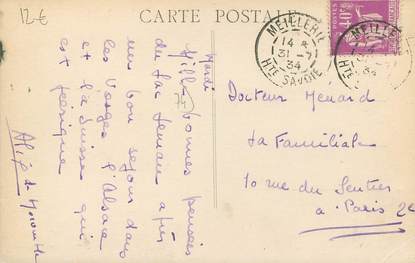 12 €
CARTE POSTALE
MEILLERIE
14
31 -7
34
HTE SAVOIE
MEILLE
HTE
40c
Mardi
Mille bonnes pensées
du lac Léman après
un bon séjour dans
les Vosges l'Alsace
et la Suisse qui
est féerique
74
Docteur Menard
La Familiale
10 rue du Sentier
a Paris 2e